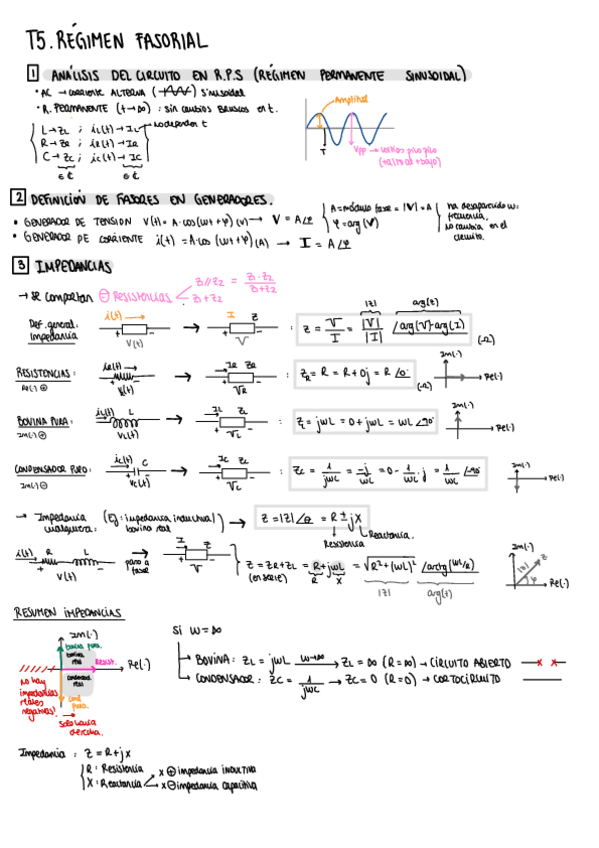 T5. RÉGIMEN FASORIAL
1 ANÁLISIS DEL CIRCUITO EN R.P.S (RÉGIMEN PERMANENTE SINUSOIDAL)
• AC → CORRIENTE ALTERNA sinusoidal
Amplitud
• R. PERMANENTE (t→∞) : sin cambios bruscos en t.
L → ZL ; iL(t) → IL
no depende t
R → ZR ; iR(t) → IR
C → ZC ; iC(t) → IC
T
2 DEFINICIÓN DE FASORES EN GENERADORES.
• GENERADOR DE TENSIÓN V(t) = A·cos(wt+φ) (V) → V = A∠φ
A = módulo fasor = |V| = A
φ = arg(V)
ha desaparecido w:
frecuencia.
no cambia en el
circuito.
• GENERADOR DE CORRIENTE i(t) = A·cos(wt+φ)(A) → I = A∠φ
3 IMPEDANCIAS
→ se comportan ⊖ Resistencias
Z1//Z2 = Z1·Z2 / Z1+Z2
Z1+Z2
Def. general:
impedancia
i(t) →
V(t)
I Z
V
: Z = V/I = |V|/|I| ∠arg(V)-arg(I)
|Z| arg(Z)
(Ω)
RESISTENCIAS:
Re(·) ⊕
iR(t) →
VR(t)
IR ZR
VR
: ZR = R = R+0j = R∠0°
(Ω)
Im(·)
Re(·)
BOVINA PURA:
Im(·) ⊕
iL(t) L
VL(t)
IL ZL
VL
: ZL = jwL = 0+jwL = wL∠90°
Im(·)
Re(·)
CONDENSADOR PURO:
Im(·) ⊖
iC(t) C
VC(t)
IC ZC
VC
: ZC = 1/jwC = -j/wC = 0 - 1/wC j = 1/wC ∠-90°
Im(·)
Re(·)
→ Impedancia
cualquiera:
(Ej: impedancia inductiva)
bovina real
→ Z = |Z|∠θ = R ± jX
Resistencia
Reactancia.
i(t) R L
V(t)
paso a
fasor
I Z
V
Z = ZR+ZL = R+jwL = √R²+(wL)² ∠arctg(wL/R)
(en serie)
R X
|Z|
arg(Z)
Im(·)
Re(·)
|Z|
φ
RESUMEN IMPEDANCIAS
Im(·)
bovina pura.
bovina
real
Resist.
Re(·)
condensador
real
cond.
puro.
no hay
impedancias
reales
negativas!
solo hacia
derecha.
Si w = ∞
→ BOVINA: ZL = jwL w→∞ → ZL = ∞ (R=∞) → CIRCUITO ABIERTO
→ CONDENSADOR: ZC = 1/jwC → ZC = 0 (R=0) → CORTOCIRCUITO
Impedancia : Z = R+jX
R: Resistencia
X: Reactancia
X ⊕ impedancia INDUCTIVA
X ⊖ impedancia capacitiva